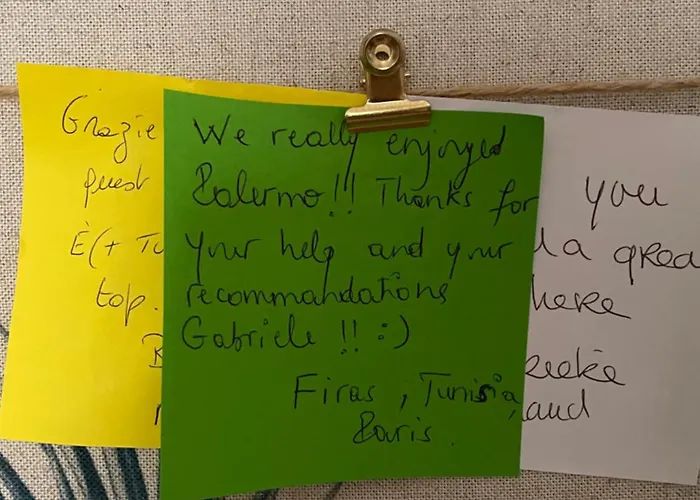 Grazie
quest
È(+ Tu
top.
We really enjoyed
Palermo!! Thanks for
your help and your
recommandations
Gabriele !! :)
Firas, Tunisia,
Paris.
you
a grea
here
and